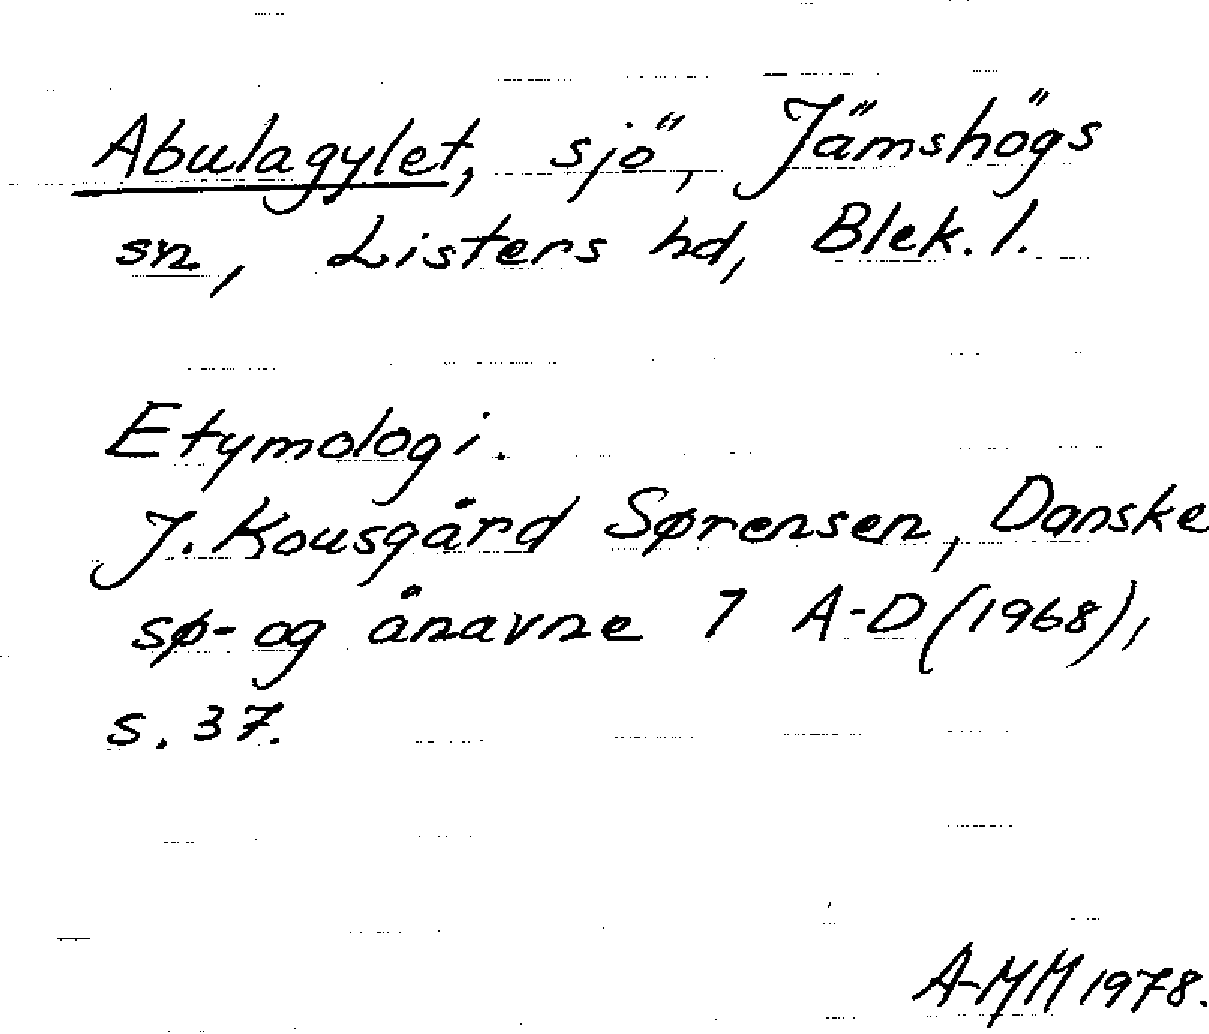 Abulagylet, sjö, Jämshögs
sn, Listers hd, Blek. l.
Etymologi.
J. Kousgård Sørensen, Danske
sø- og ånavne 1 A-D (1968),
s. 37.
A-MM 1978.